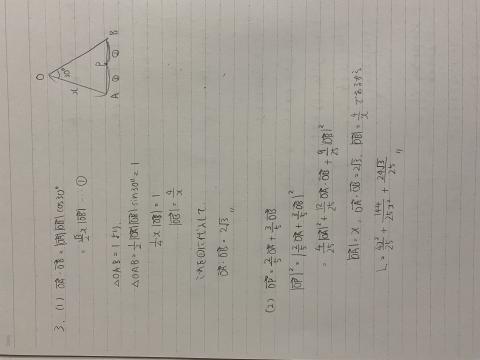 3. (1) OA・OB = |OA||OB| cos30°
= √3/2 x |OB| ①
△OAB = 1 より、
△OAB = 1/2 |OA||OB| sin30° = 1
1/4 x |OB| = 1
|OB| = 4/x
これを①に代入して
OA・OB = 2√3 〃
(2) OP = 2/5 OA + 3/5 OB
|OP|² = |2/5 OA + 3/5 OB|²
= 4/25 |OA|² + 12/25 OA・OB + 9/25 |OB|²
|OA| = x , OA・OB = 2√3 , |OB| = 4/x であるから
L = 4x²/25 + 144/25x² + 24√3/25 〃
O
30°
x
P
A ③ ② B